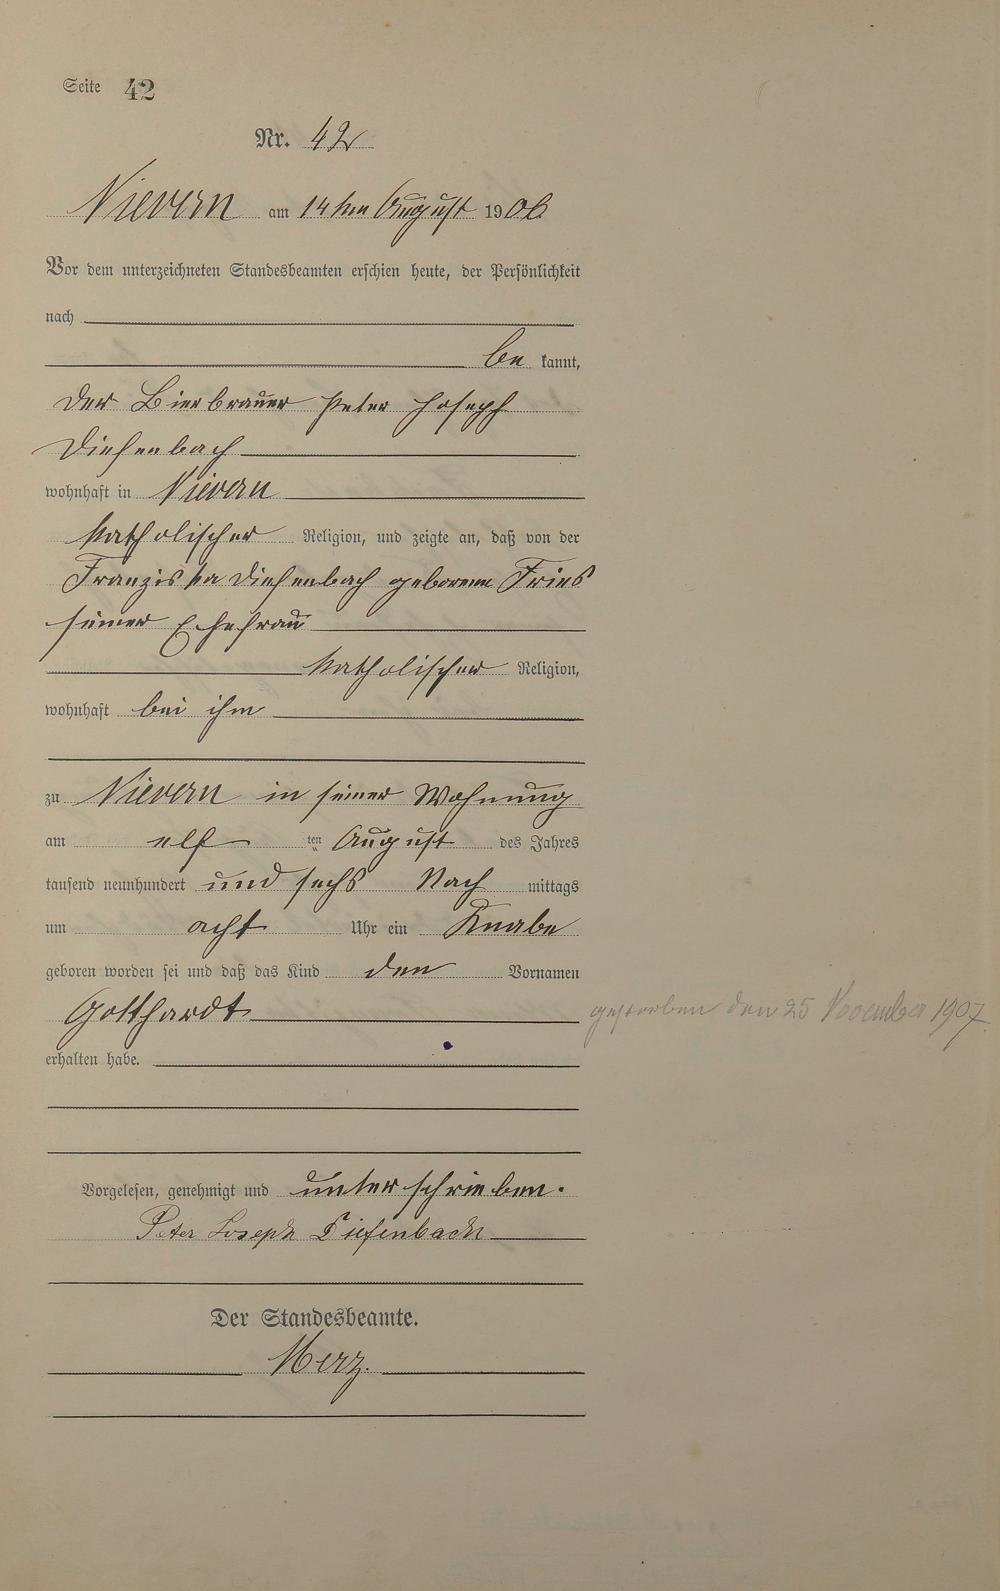 Seite 42
Nr. 42
Nievern am 14ten August 1906
Vor dem unterzeichneten Standesbeamten erschien heute, der Persönlichkeit
nach
be kannt,
der Bierbrauer Peter Joseph
Diefenbach
wohnhaft in Nievern
katholischer Religion, und zeigte an, daß von der
Franziska Diefenbach geborenen Fries
seiner Ehefrau
katholischer Religion,
wohnhaft bei ihm
zu Nievern in seiner Wohnung
am elf ten August des Jahres
tausend neunhundert und sechs Nach mittags
um acht Uhr ein Knabe
geboren worden sei und daß das Kind den Vornamen
Gotthardt
gestorben den 25 November 1907.
erhalten habe.
Vorgelesen, genehmigt und unterschrieben.
Peter Joseph Diefenbach
Der Standesbeamte.
Merz.